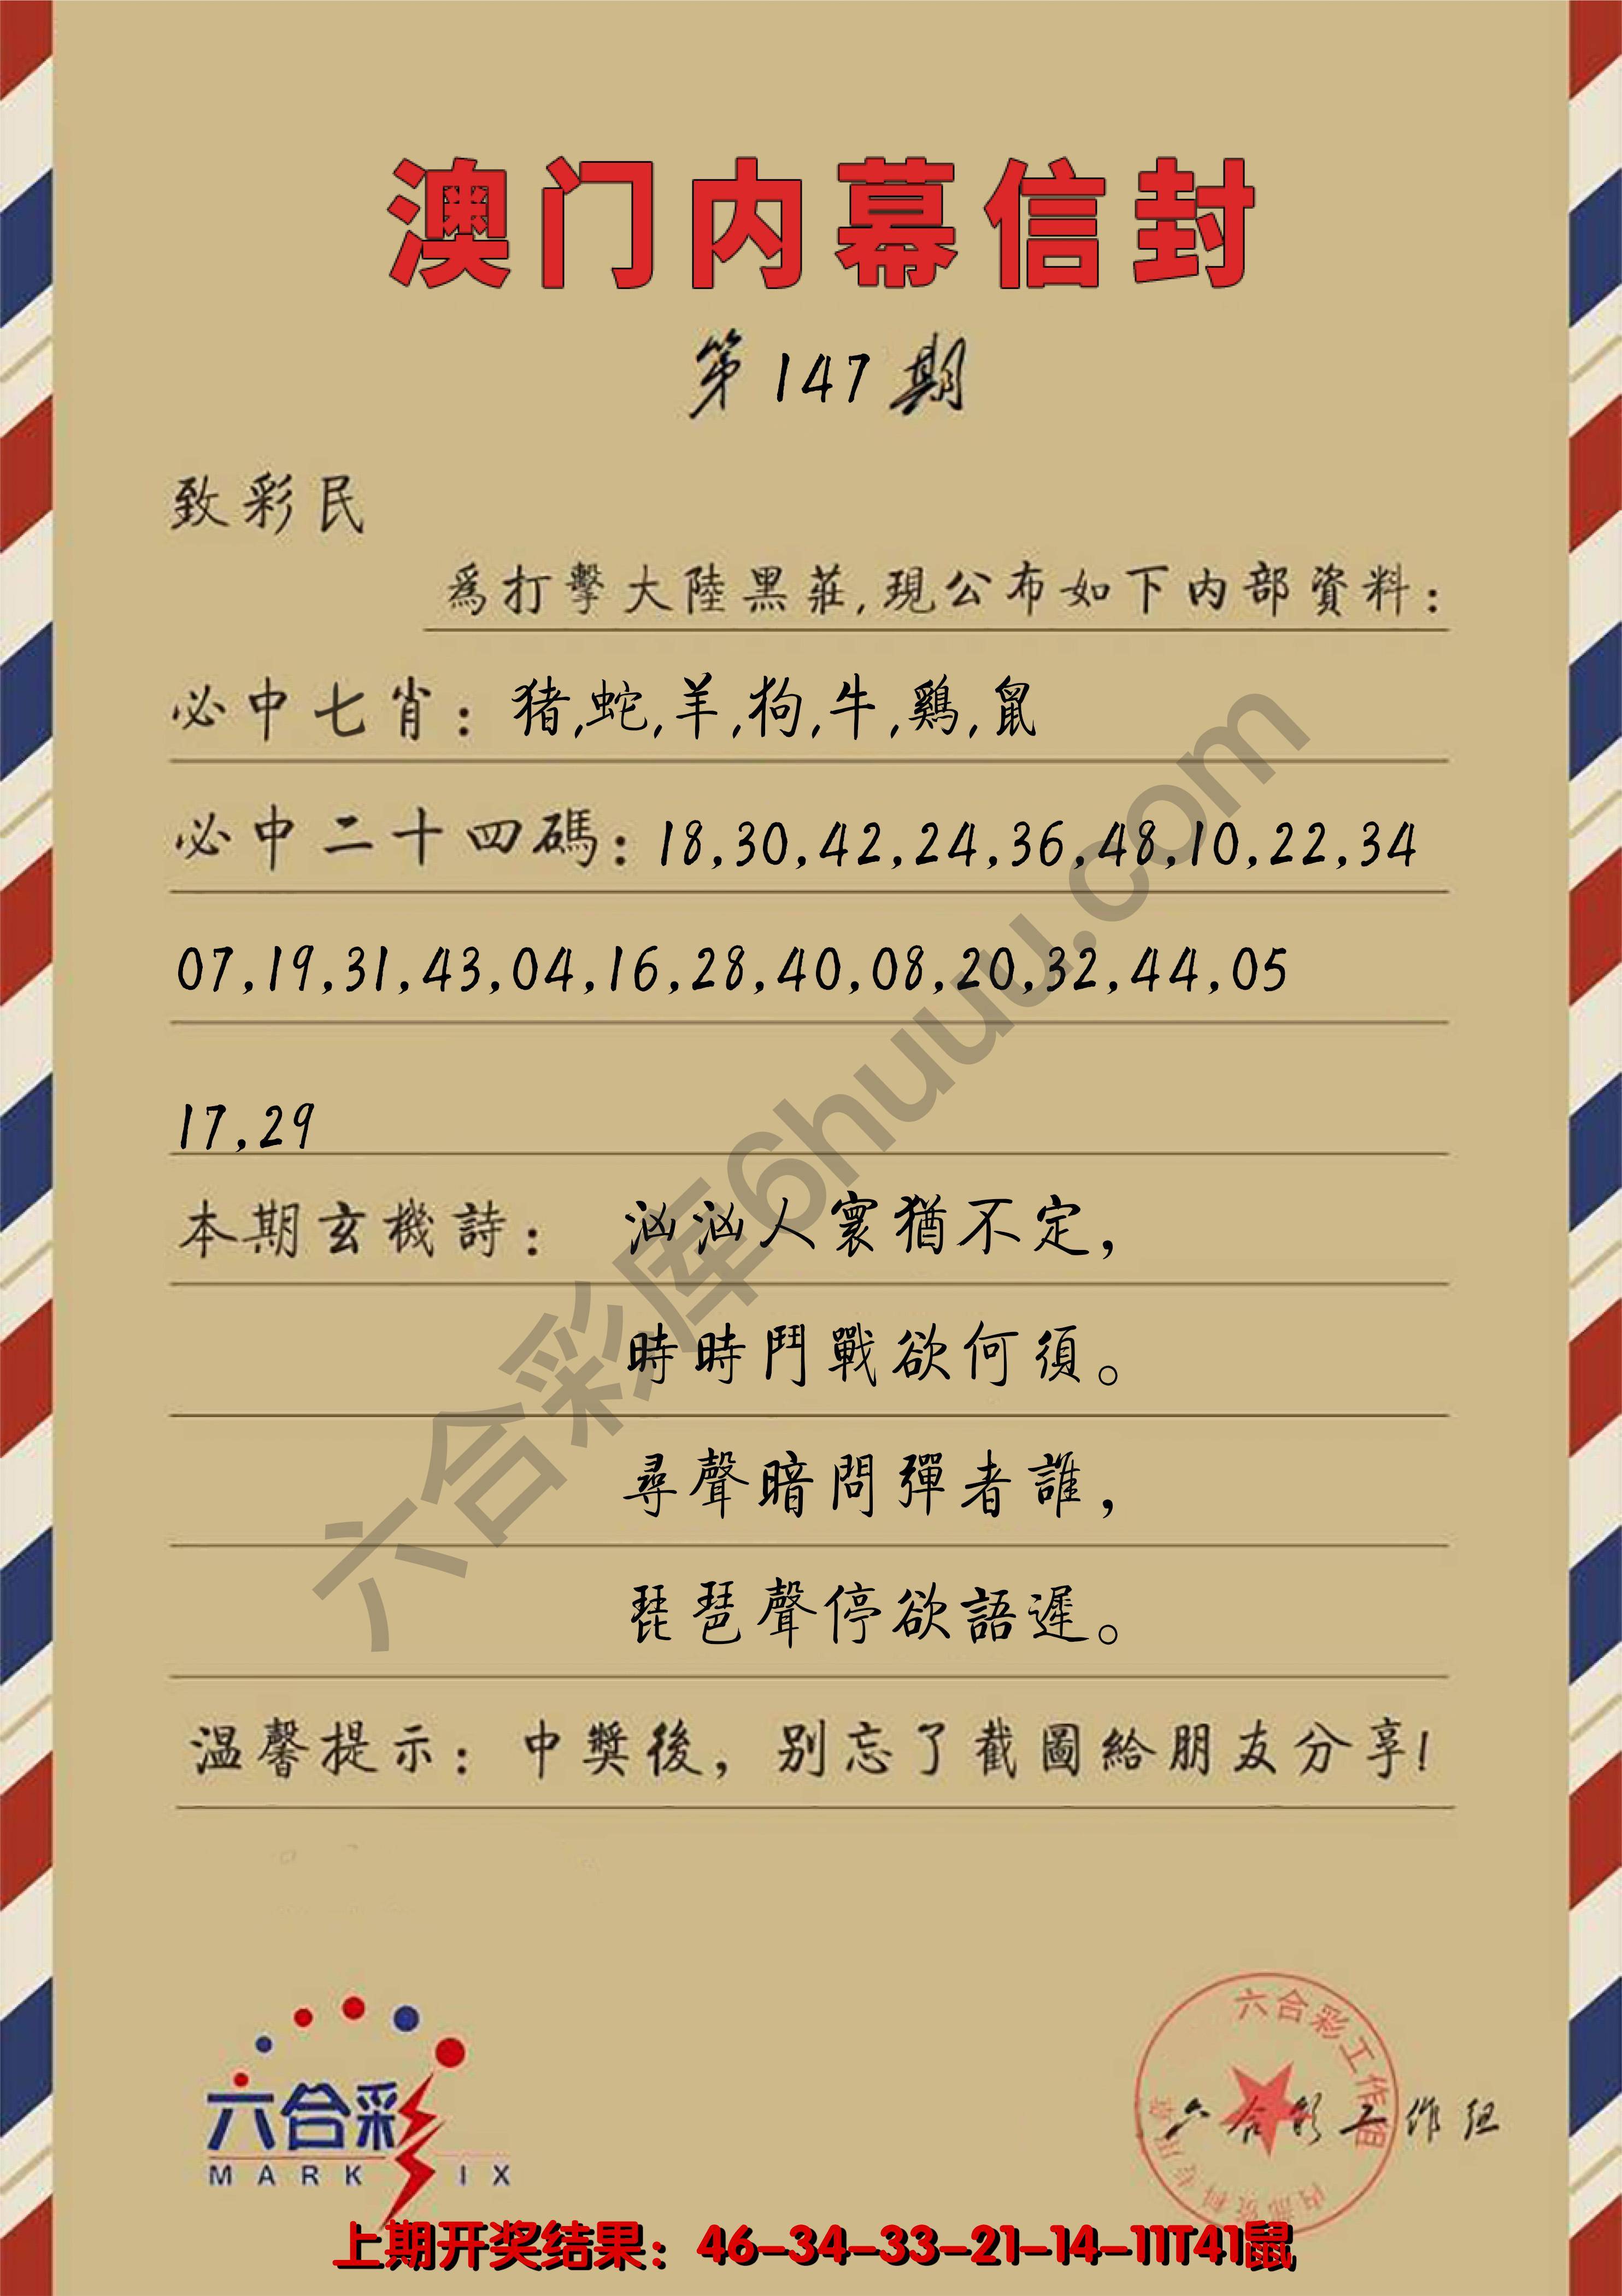 澳门内幕信封
第147期
致彩民
爲打擊大陸黑莊,現公布如下内部資料:
必中七肖:猪,蛇,羊,狗,牛,鷄,鼠
必中二十四碼:18,30,42,24,36,48,10,22,34
07,19,31,43,04,16,28,40,08,20,32,44,05
17,29
本期玄機詩: 汹汹人寰猶不定,
時時鬥戰欲何須。
尋聲暗問彈者誰,
琵琶聲停欲語遲。
温馨提示:中獎後,别忘了截圖給朋友分享!
六合彩库6huuu.com
六合彩
MARK SIX
六合彩工作组
内部资料专用章
六合彩工作组
上期开奖结果:46-34-33-21-14-11T41鼠